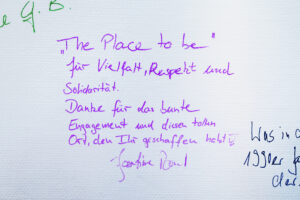 e G. B.
"The Place to be"
für Vielfalt, Respekt und
Solidarität.
Danke für das bunte
Engagement und diesen tollen
Ort, den Ihr geschaffen habt!
Was in d
1990er